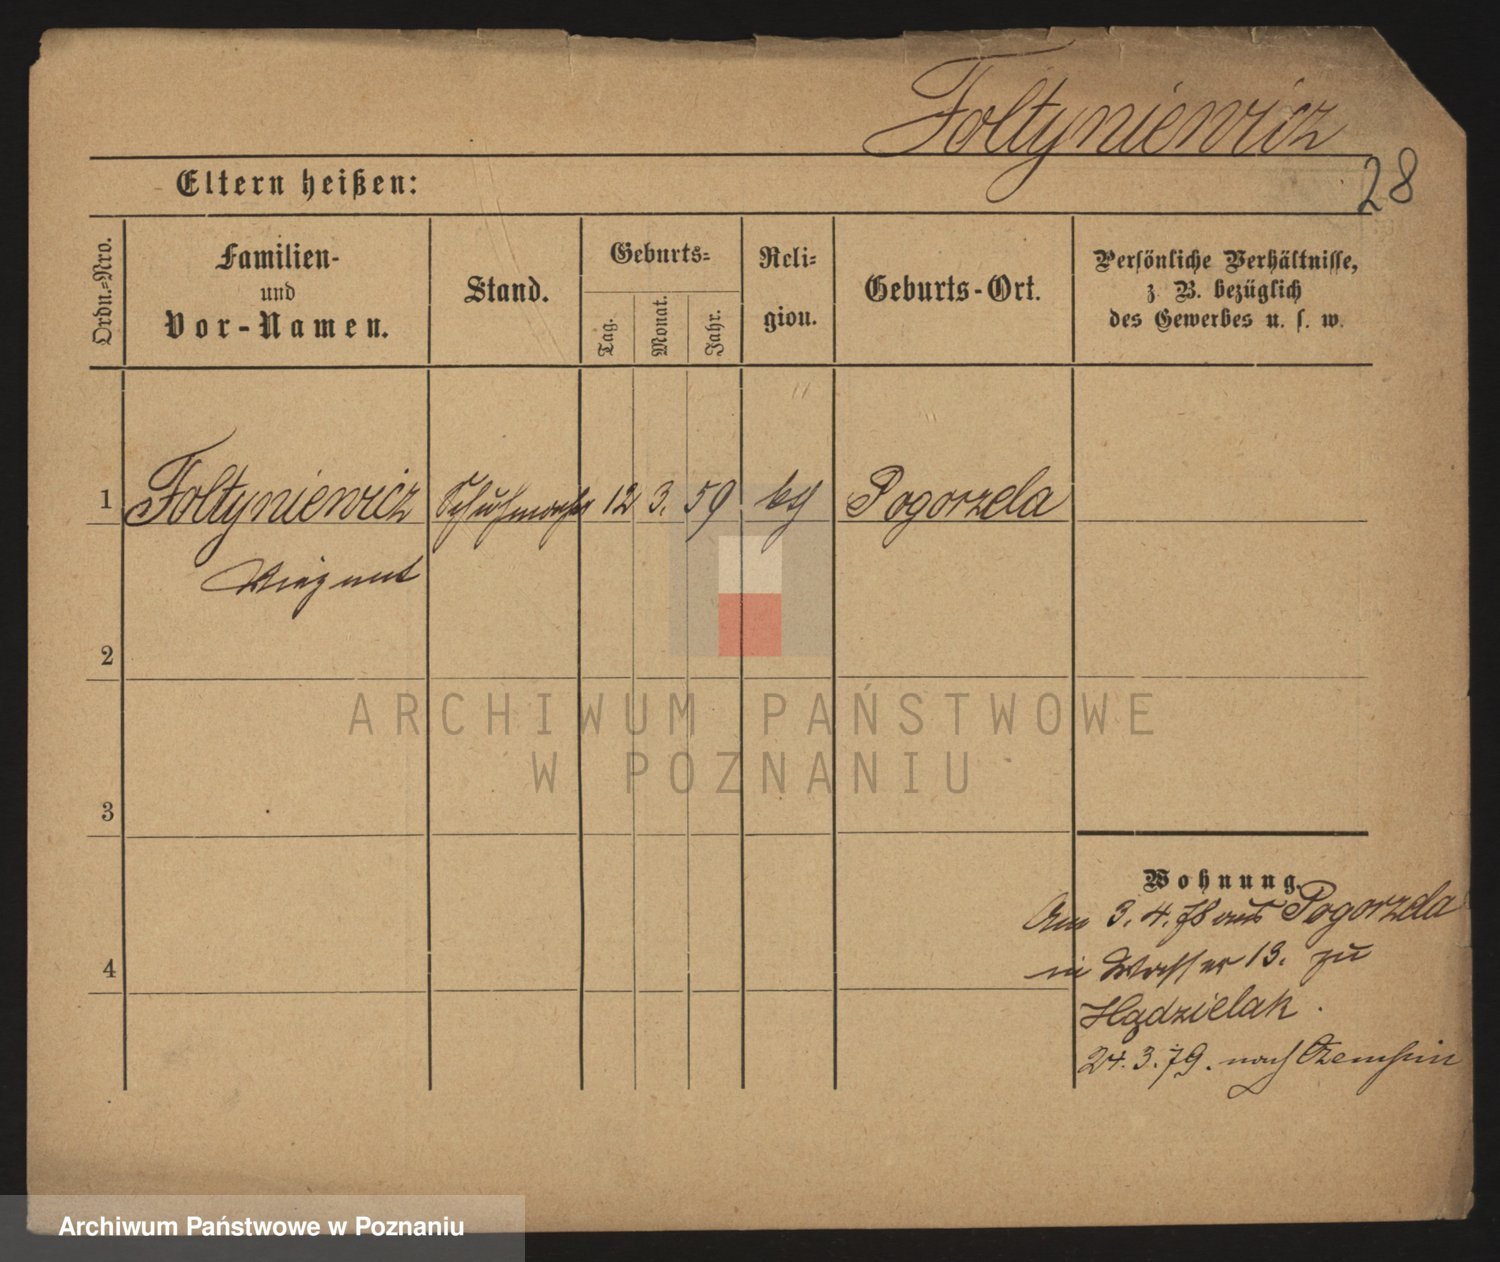 Foltyniewicz
28
Eltern heißen:
Ordn.-Nro.
Familien-
und
Vor-Namen.
Stand.
Geburts-
Tag.
Monat.
Jahr.
Reli-
gion.
Geburts-Ort.
Persönliche Verhältnisse,
z. B. bezüglich
des Gewerbes u. s. w.
1 Foltyniewicz Schuhmacher 12 3. 59 kg Pogorzela
2
ARCHIWUM PAŃSTWOWE
W POZNANIU
3
Wohnung.
Am 3. 4. 78 aus Pogorzela
4
in Wasser 13. zu
24. 3. 79. nach
Archiwum Państwowe w Poznaniu